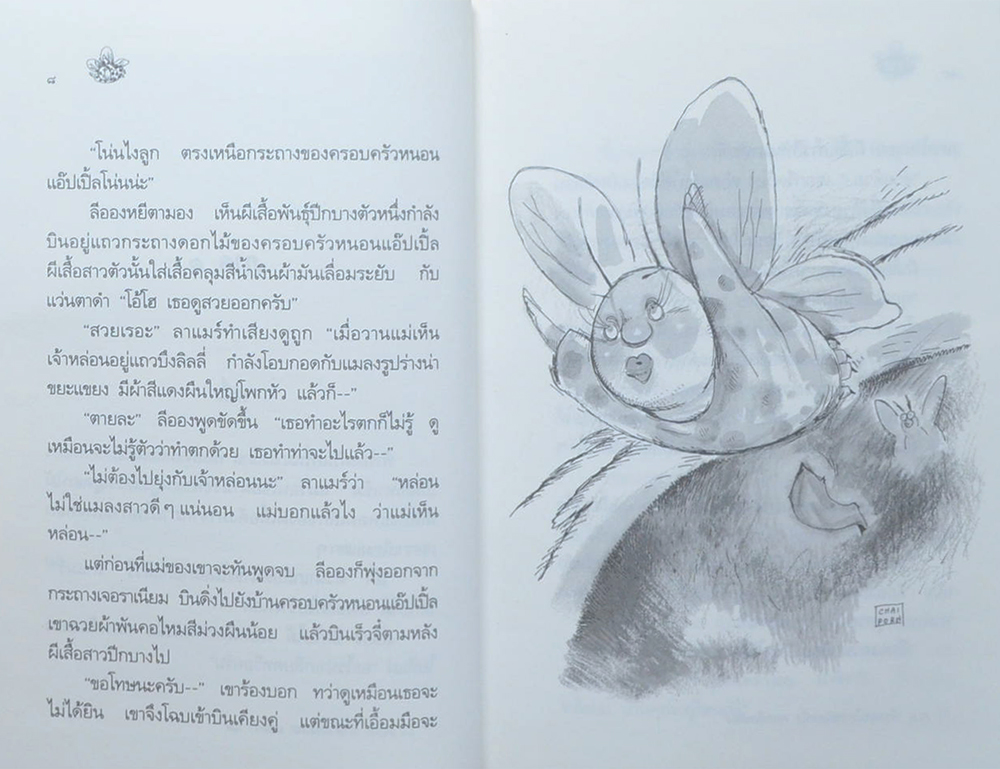 ๘
“โน่นไงลูก ตรงเหนือกระถางของครอบครัวหนอน
แอ๊ปเปิ้ลโน่นน่ะ”
ลีอองหยีตามอง เห็นผีเสื้อพันธุ์ปีกบางตัวหนึ่งกำลัง
บินอยู่แถวกระถางดอกไม้ของครอบครัวหนอนแอ๊ปเปิ้ล
ผีเสื้อสาวตัวนั้นใส่เสื้อคลุมสีน้ำเงินผ้ามันเลื่อมระยับ กับ
แว่นตาดำ “โอ้โฮ เธอดูสวยออกครับ”
“สวยเรอะ” ลาแมร์ทำเสียงดูถูก “เมื่อวานแม่เห็น
เจ้าหล่อนอยู่แถวบึงลิลลี่ กำลังโอบกอดกับแมลงรูปร่างน่า
ขยะแขยง มีผ้าสีแดงผืนใหญ่โพกหัว แล้วก็--”
“ตายละ” ลีอองพูดขัดขึ้น “เธอทำอะไรตกก็ไม่รู้ ดู
เหมือนจะไม่รู้ตัวว่าทำตกด้วย เธอทำท่าจะไปแล้ว--”
“ไม่ต้องไปยุ่งกับเจ้าหล่อนนะ” ลาแมร์ว่า “หล่อน
ไม่ใช่แมลงสาวดีๆ แน่นอน แม่บอกแล้วไง ว่าแม่เห็น
หล่อน--”
แต่ก่อนที่แม่ของเขาจะทันพูดจบ ลีอองก็พุ่งออกจาก
กระถางเจอราเนียม บินดิ่งไปยังบ้านครอบครัวหนอนแอ๊ปเปิ้ล
เขาฉวยผ้าพันคอไหมสีม่วงผืนน้อย แล้วบินเร็วจี๋ตามหลัง
ผีเสื้อสาวปีกบางไป
“ขอโทษนะครับ--” เขาร้องบอก ทว่าดูเหมือนเธอจะ
ไม่ได้ยิน เขาจึงโฉบเข้าบินเคียงคู่ แต่ขณะที่เอื้อมมือจะ
CHAI
PORN